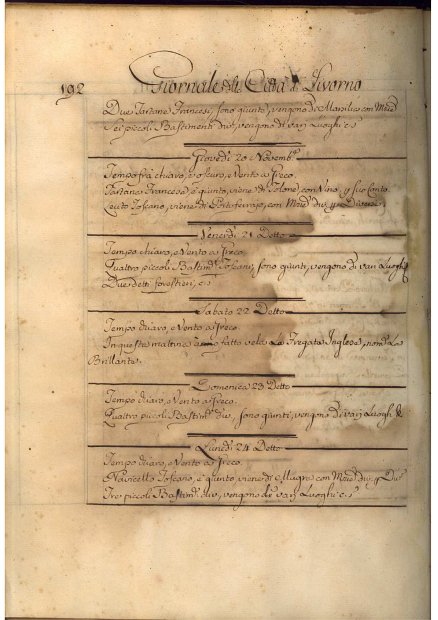 192
Giornale di Città di Livorno
Due Tartane Francesi, sono giunte, vengono di Marsilia con
Sei piccoli Bastimenti div. vengono di varj Luoghi e.s
Giovedi 20 Novemb.e
Tempo frà chiaro, e oscuro, e Vento a Greco.
Tartana Francese è giunta, viene di Tolone, con Vino, p suo Conto.
Leuto Toscano, viene di Portoferrajo, con div. p Diversi
Venerdi 21 Detto
Tempo chiaro, e Vento a Greco.
Quattro piccoli Bastim.ti Toscani, sono giunti, vengono di varj Luoghi
Due detti forestieri, e.s
Sabato 22 Detto
Tempo chiaro, e Vento a Greco.
In questa mattina à fatto vela La Fregata Inglese, nom.a La
Brillante.
Domenica 23 Detto
Tempo chiaro, e Vento a Greco.
Quattro piccoli Bastim.ti div. sono giunti, vengono di varj Luoghi
Lunedi 24 Detto
Tempo chiaro, e Vento a Greco.
Navicello Toscano, è giunto, viene di con div. p
Tre piccoli Bastim.ti div. vengono di varj Luoghi e.s